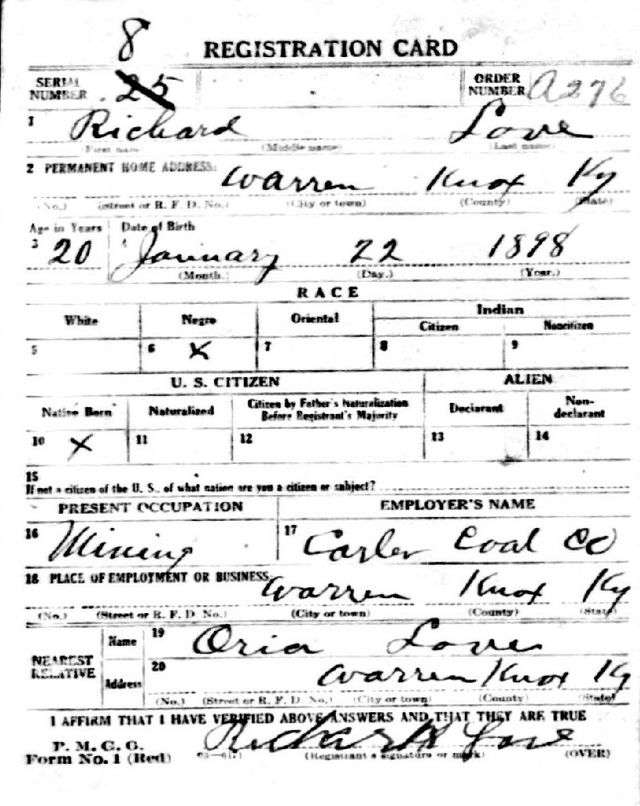 8
REGISTRATION CARD
SERIAL NUMBER 25
ORDER NUMBER A276
1 Richard Love
(First name) (Middle name) (Last name)
2 PERMANENT HOME ADDRESS: Warren Knox Ky
(No.) (street or R. F. D. No.) (City or town) (County) (State)
Age in Years Date of Birth
3 20 4 January 22 1898
(Month.) (Day.) (Year.)
RACE
White Negro Oriental Indian
Citizen Noncitizen
5 6 X 7 8 9
U. S. CITIZEN ALIEN
Native Born Naturalized Citizen by Father's Naturalization Before Registrant's Majority Declarant Non-declarant
10 X 11 12 13 14
15
If not a citizen of the U. S., of what nation are you a citizen or subject?
PRESENT OCCUPATION EMPLOYER'S NAME
16 Mining 17 Coal Co
18 PLACE OF EMPLOYMENT OR BUSINESS: Warren Knox Ky
(No.) (Street or R. F. D. No.) (City or town) (County) (State)
NEAREST RELATIVE
Name 19 Oria Love
Address 20 Warren Knox Ky
(No.) (Street or R. F. D. No.) (City or town) (County) (State)
I AFFIRM THAT I HAVE VERIFIED ABOVE ANSWERS AND THAT THEY ARE TRUE
P. M. G. O.
Form No. 1 (Red) Richard Love
(Registrant's signature or mark) (OVER)